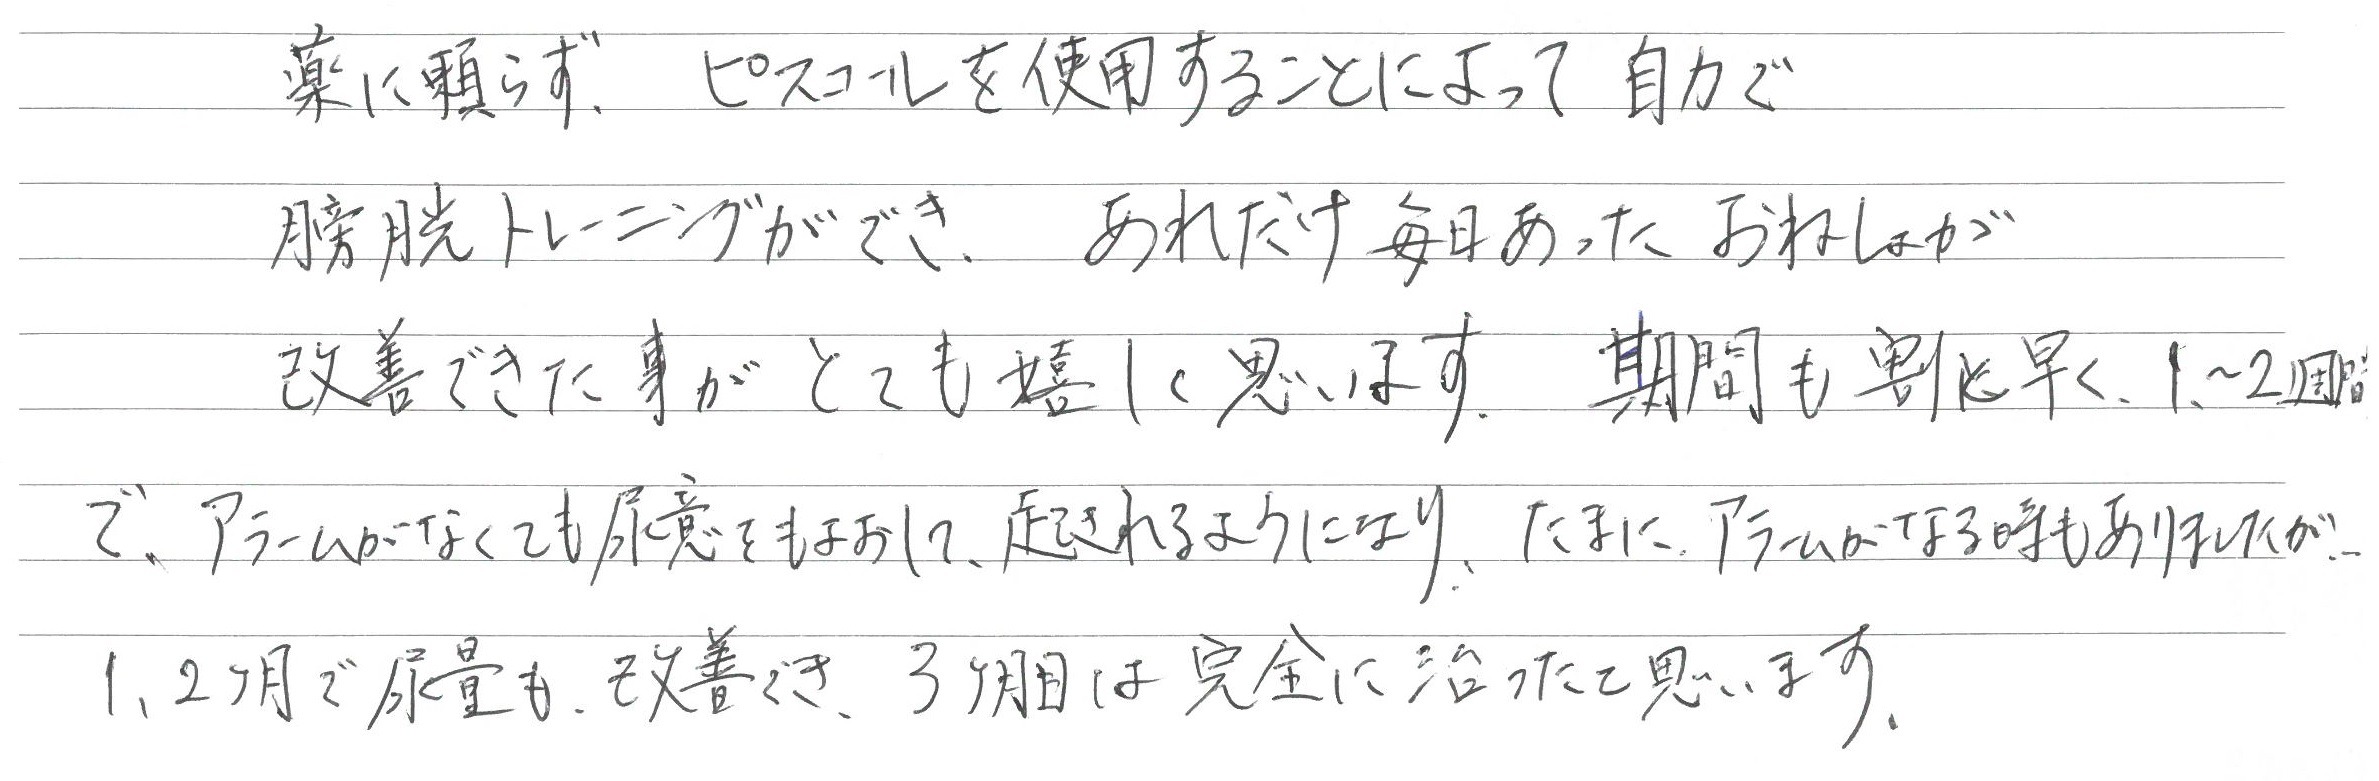 薬に頼らず、ピスコールを使用することによって自力で
膀胱トレーニングができ、あれだけ毎日あったおねしょが
改善できた事がとても嬉しく思います。期間も割と早く、1、~2週間
で、アラームがなくても尿意をもよおして、起きれるようになり、たまに、アラームがなる時もありましたが、
1、2ヶ月で尿量も、改善でき、3ヶ月目は完全に治ったと思います。